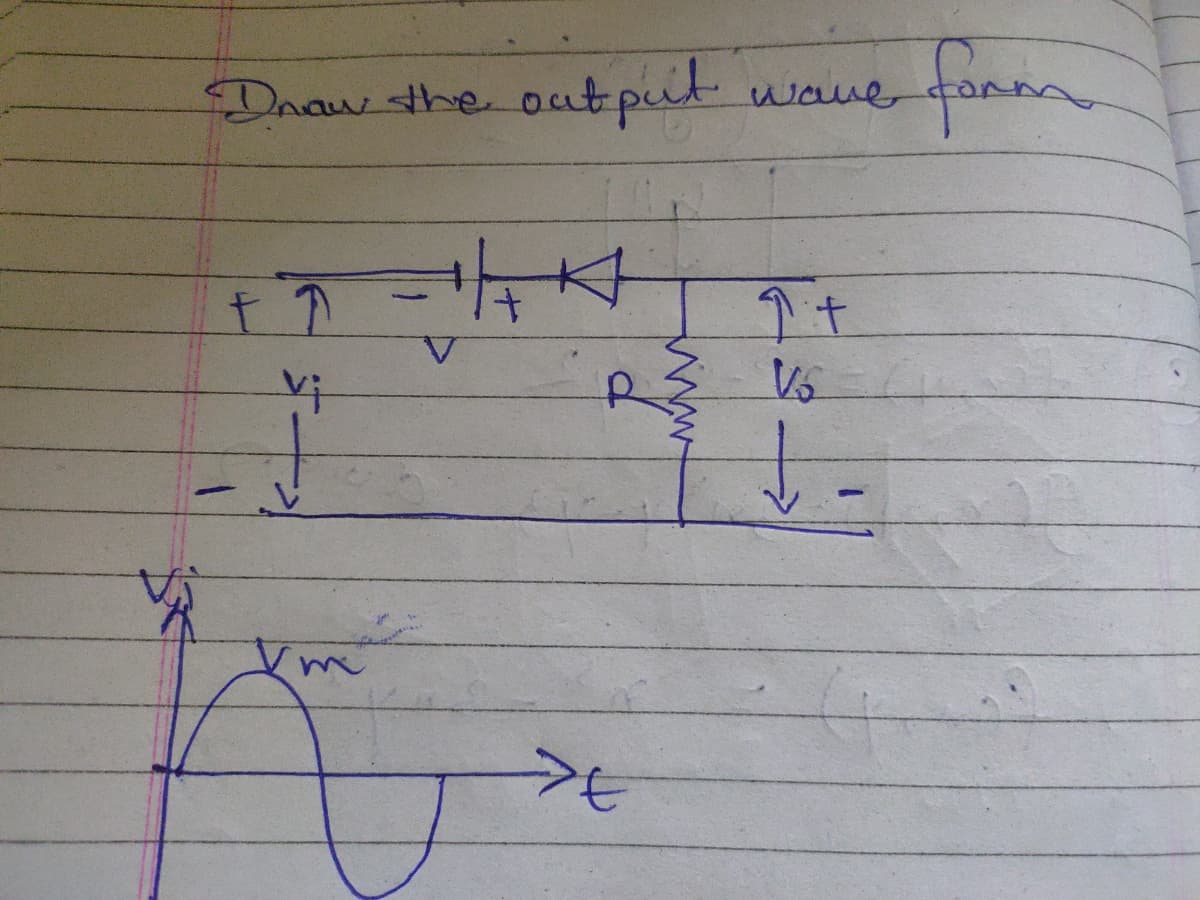 Draw the output wave form
+ - + +
V
Vi R Vo
- -
Vi
Vm
t